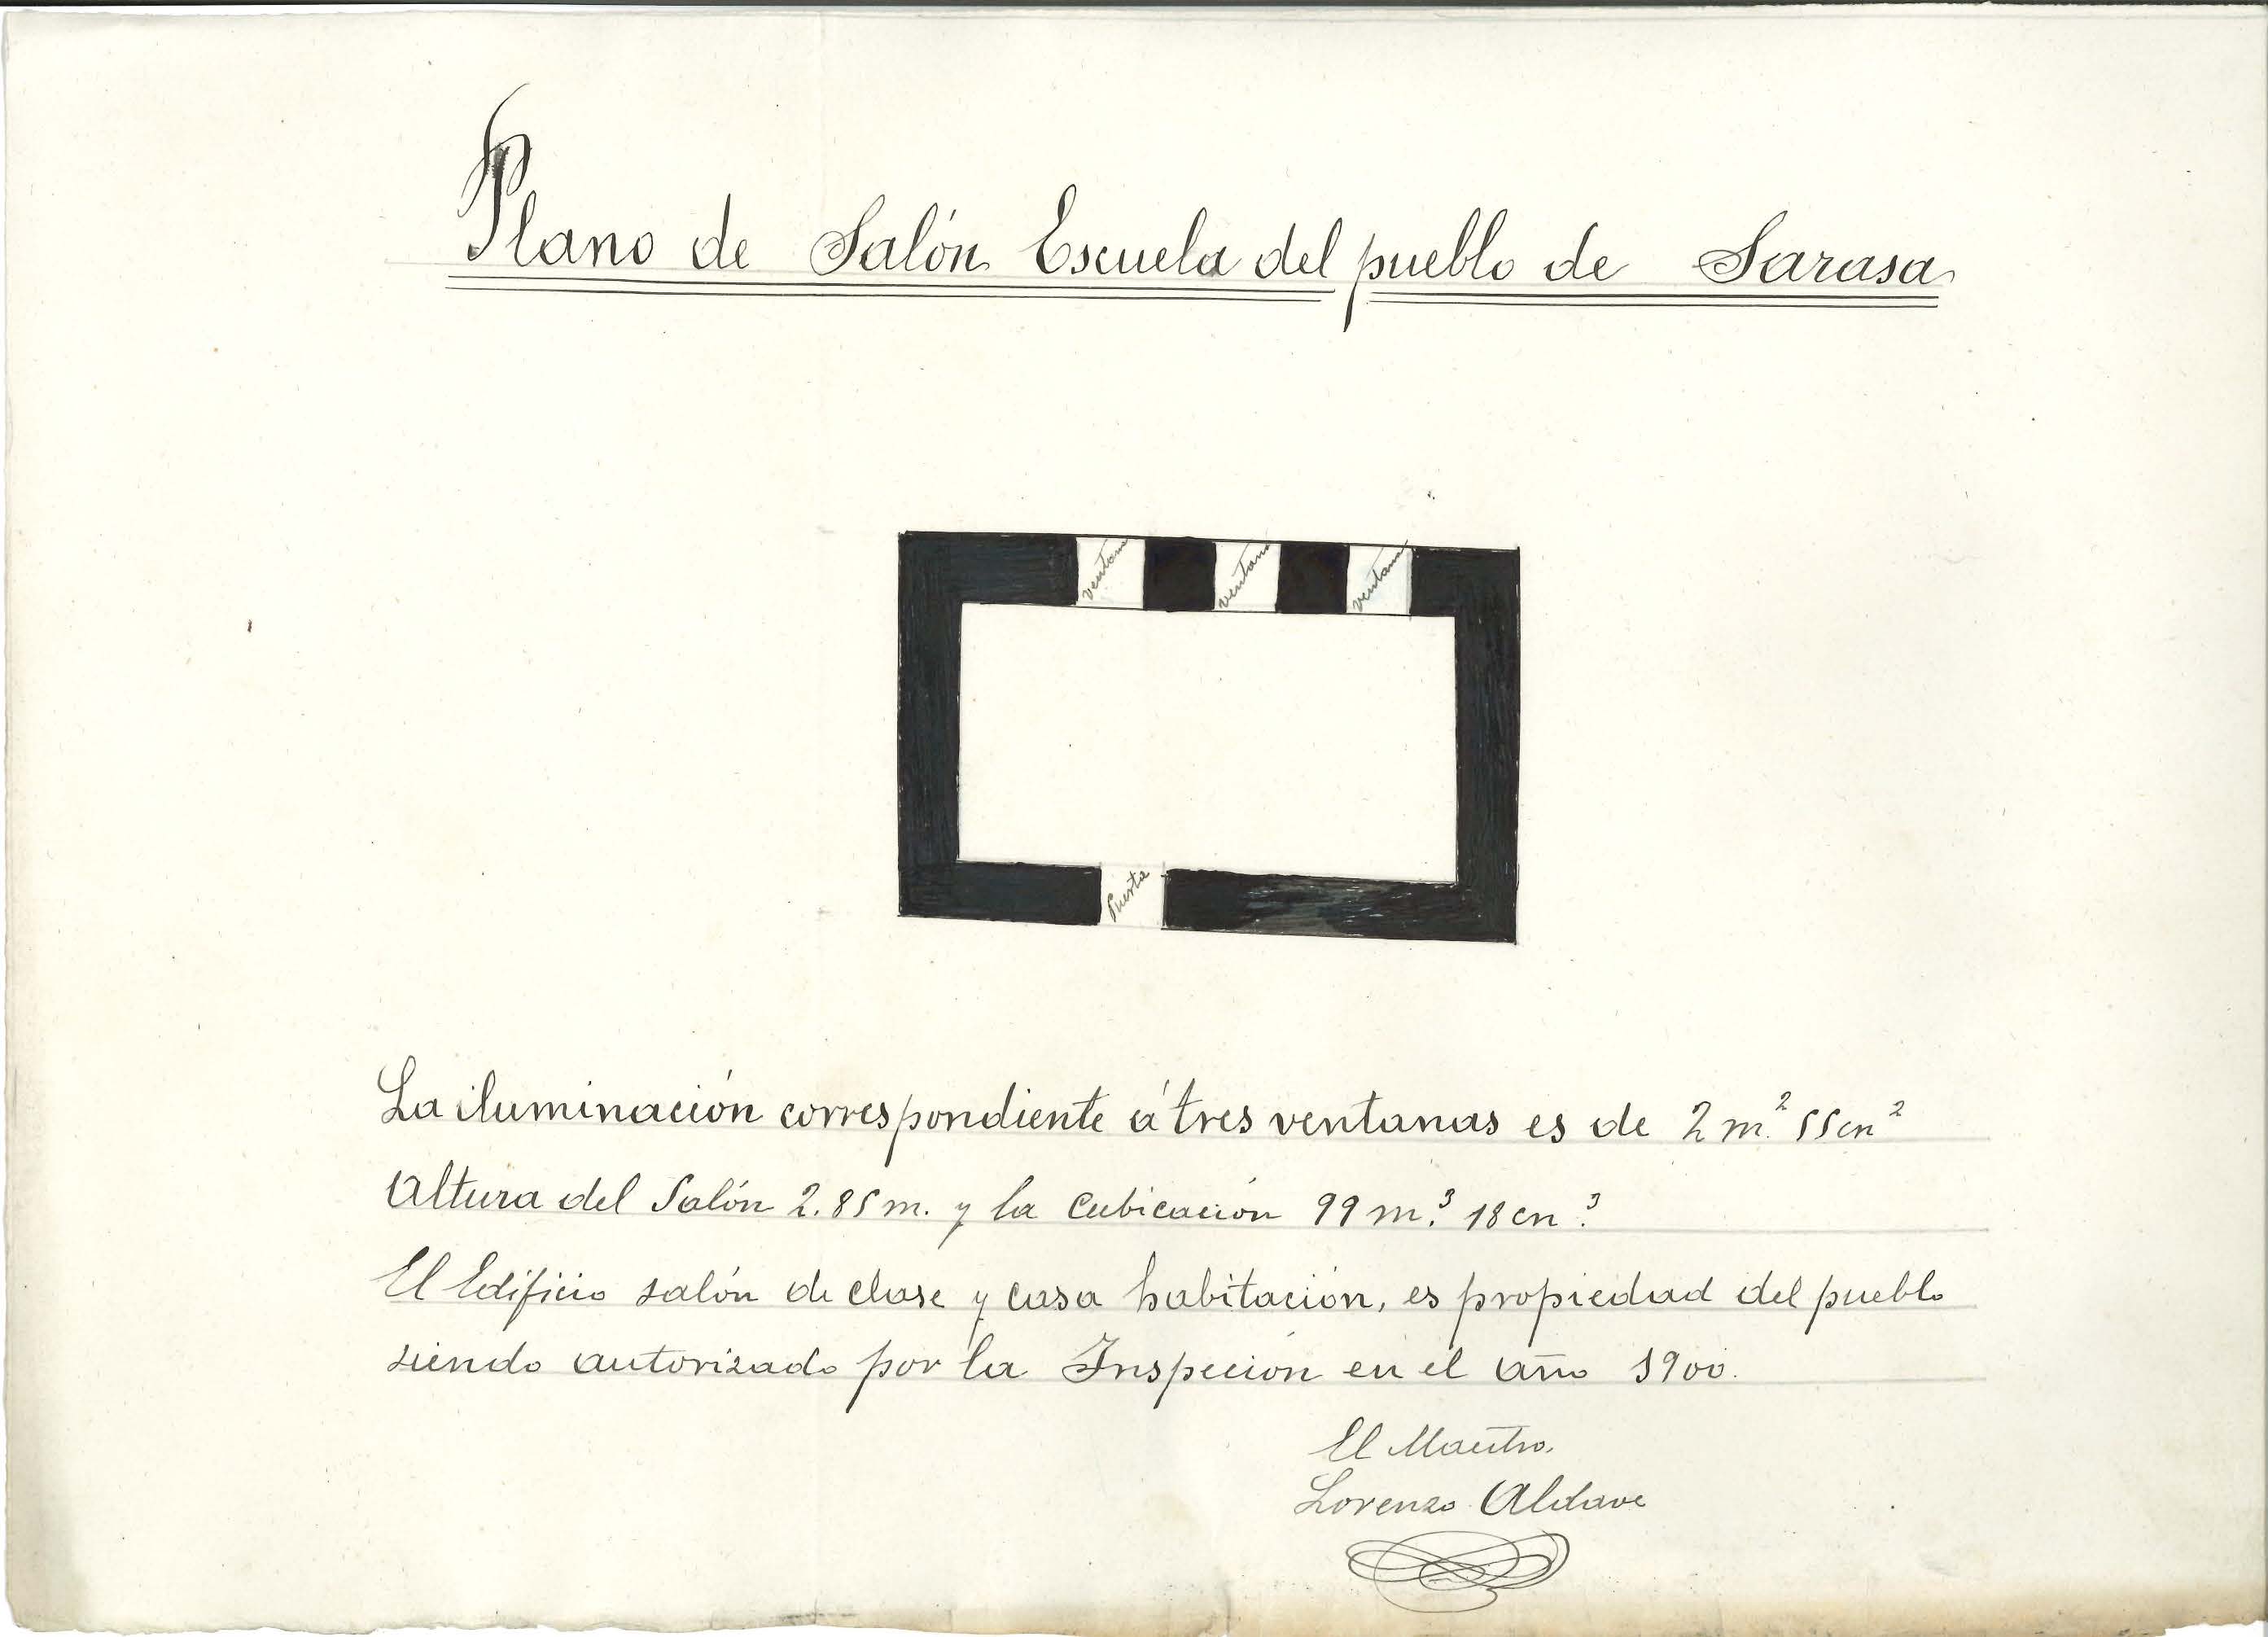 Plano de Salón Escuela del pueblo de Sarasa
ventana ventana ventana
Puerta
La iluminación correspondiente á tres ventanas es de 2 m.² 55 cm²
Altura del Salón 2.85 m. y la cubicación 99 m.³ 18 cm.³
El Edificio salón de clase y casa habitación, es propiedad del pueblo
siendo autorizado por la Inspeción en el año 1900.
El Maestro.
Lorenzo Aldave